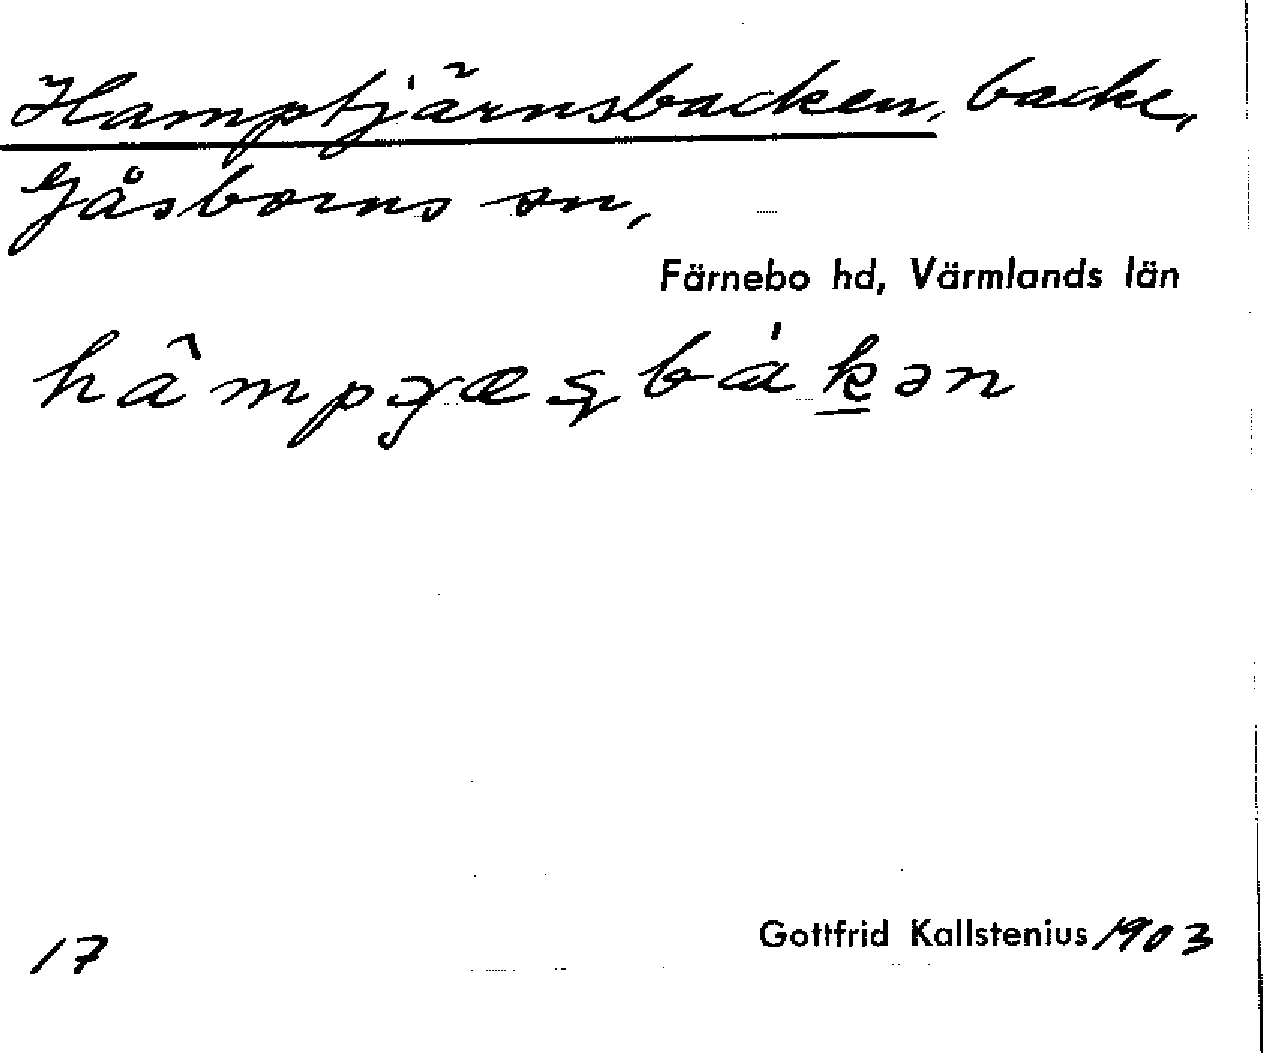 Hamptjärnsbacken, backe,
Gåsborns sn,
Färnebo hd, Värmlands län
17
Gottfrid Kallstenius 1903